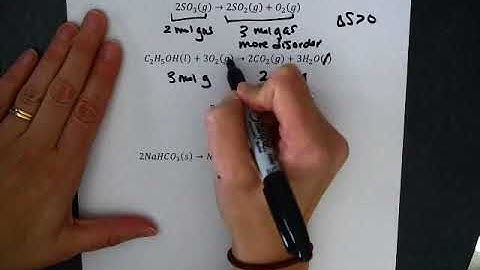 2SO₃(g) → 2SO₂(g) + O₂(g)
ΔS>0
2 mol gas 3 mol gas
more disorder
C₂H₅OH(l) + 3O₂(g) → 2CO₂(g) + 3H₂O(l)
3 mol g 2
2NaHCO₃(s) → N